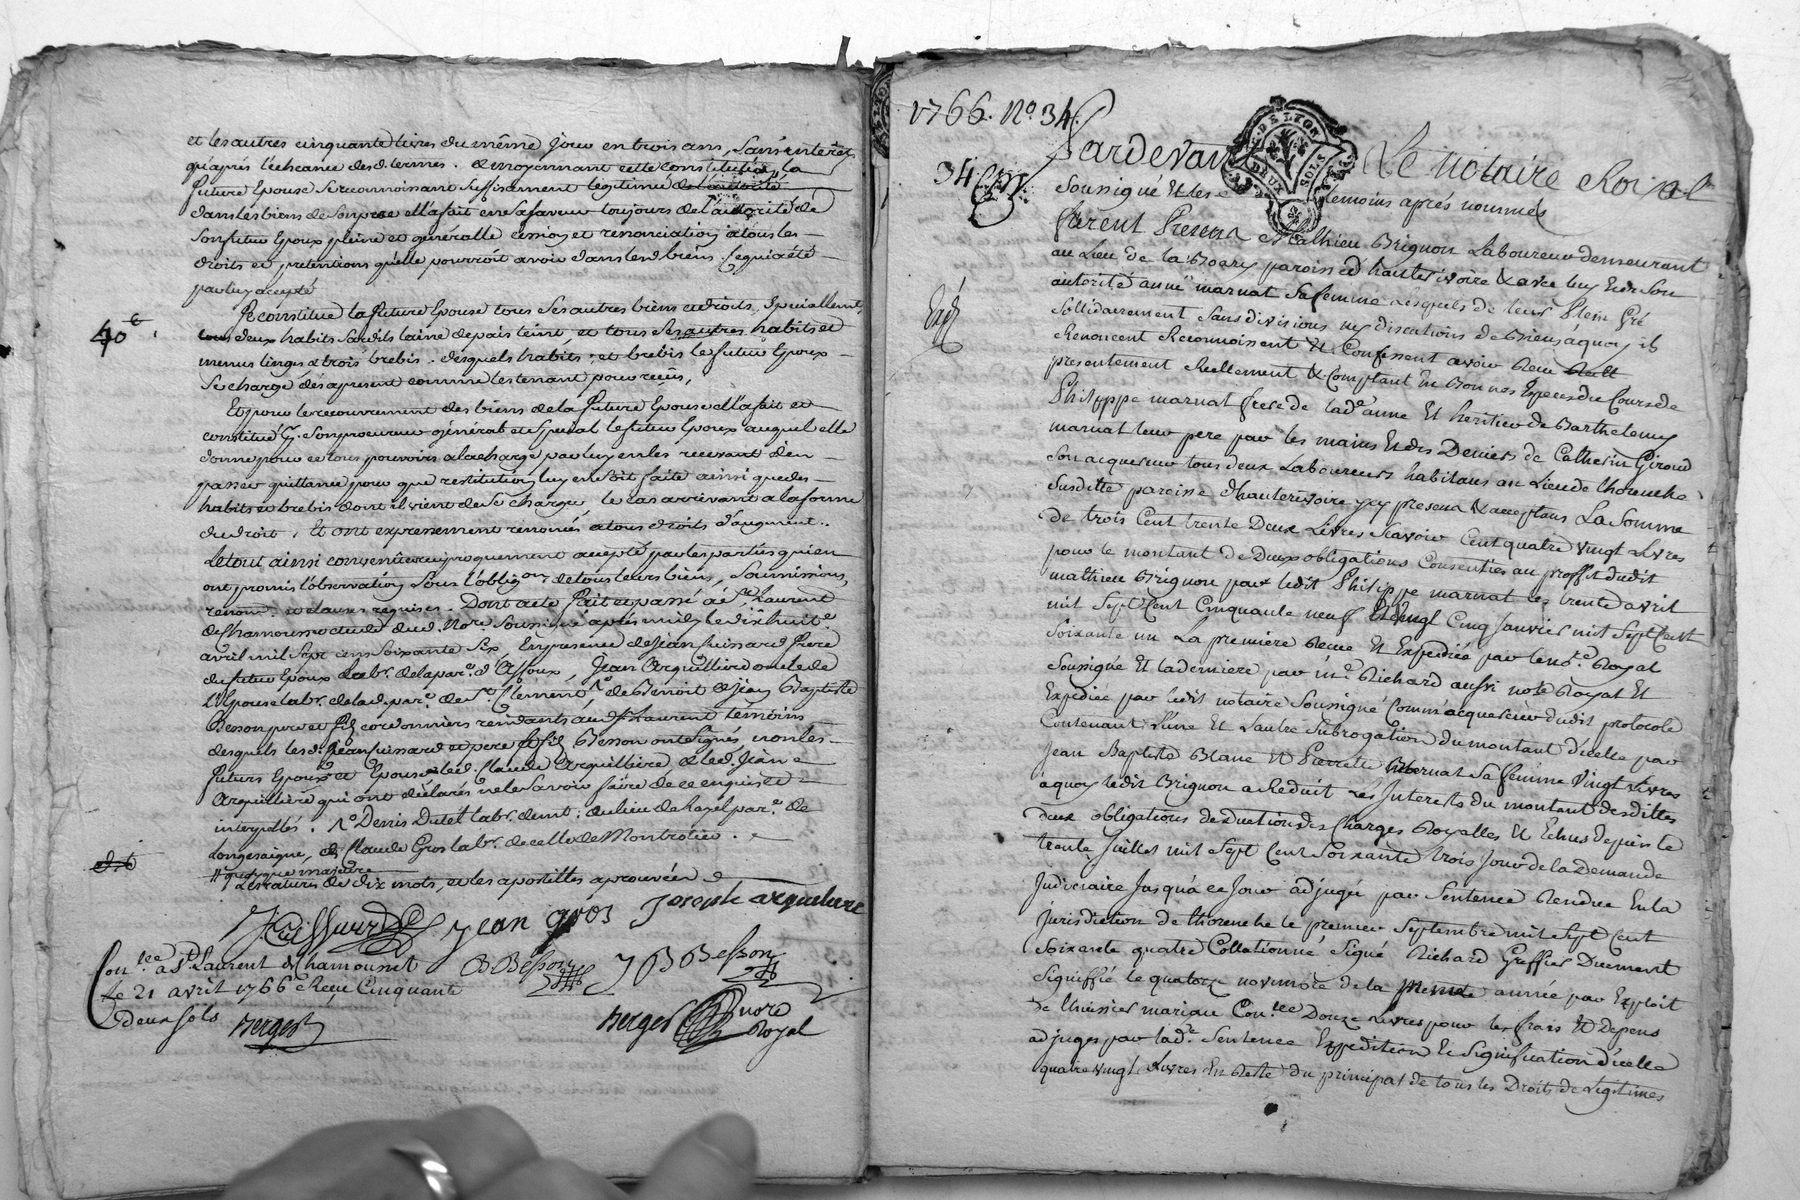 et les autres cinquante livres du même jour en trois ans, sans interêts
qu'aprés l'écheance desd. termes. et moyennant cette constitution la
future Epouse se reconnoissant suffisament legitimée
dans les biens de son pere elle a fait en sa faveur toujours de l'autorité de
son futur Epoux pleine et generalle cession et renonciation a tous les
droits et pretentions qu'elle pourroit avoir dans lesd. biens. ce qui a été
par luy acepté
Se constitue la future Epouse tous ses autres biens et droits, speciallement
deux habits sardits laine depais teint, et tous ses autres habits et
menus linges et trois brebis. desquels habits et brebis le futur Epoux
se charge dés apresent comme les tenant pour reçus,
Et pour le recouvrement des biens de la future Epouse elle a fait et
constitué son procureur général et special le futur Epoux auquel elle
donne pour ce tous pouvoirs a la charge par luy en les recevant d'en
passer quittance pour que restitution luy en soit faite ainsi que des
habits et brebis dont il vient de se charger, le cas arrivant a la forme
du droit. Et ont expressement renoncé a tous droits d'augment.
Le tout ainsi convenu et reciproquement accepté par les parties qui en
ont promis l'observation sous l'obligon de tous leurs biens, soumissions,
renonc. et clauses requises. Dont acte fait et passé a St. Laurent
de Chamousset etude dud. Nore soussigné aprés midy le dix huit
avril mil sept cens soixante six, En presence de Jean Fuissard frere
du futur Epoux labr. de la par. d'Affoux, Jean Arquilliere oncle de
l'Epouse labr. de lad. par. de St. Clement, de Benoit et Jean Baptiste
Besson pere et fils cordonniers residants aud. St. Laurent temoins
desquels les d. Jean Fuissard et pere et fils Besson ont signés non les
futurs Epoux et Epouse, led. Claude Arquilliere et led. Jean
Arquilliere qui ont declarés ne le savoir faire de ce enquis et
interpellés. Denis Dutel labr. demt. au lieu de Hazel par. de
Longesaigne, et Claude Gros labr. de celle de Montrotier.
quoyque majeure
Les ratures de dix mots, et les apostilles aprouvées
jean gros Joseph arquilliere
B Besson J B Besson
Conlée a St. Laurent de Chamousset
Le 21 avril 1766 Reçu Cinquante
deux sols Berger
Berger nore
Royal
1766. No. 34.
34
Pardevant Le Notaire Roial
Soussigné Et les temoins aprés nommés
furent Presens Mathieu Brignon Laboureur demeurant
au Lieu de la Roary paroisse d'hauterivoire & avec luy Et de son
autorité anne marnat sa femme Lesquels de leur Plein Gré
Sollidairement sans divisions ny discutions de biens a quoy ils
Renoncent Reconnoissent Et Confessent avoir Receu
presentement Reellement & Comptant En Bonnes Especes du Cours de
Philippe marnat frere de lade. anne Et heritier de Barthelemy
marnat leur pere par les mains Et des Deniers de Catherin Giroud
son acquereur tous deux Laboureurs habitans au Lieu de thorenche
susditte paroisse d'hauterivoire icy presens & acceptans La Somme
de trois Cent trente Deux Livres Scavoir Cent quatre vingt Livres
pour le montant de Deux obligations Consenties au proffit dudit
mathieu Brignon par ledit Philippe marnat les trente avril
mil Sept Cent Cinquante neuf Et vingt Cinq Janvier mil Sept Cent
Soixante un La premiere Receue Et Expediée par le note. Royal
Soussigné Et la derniere par me. Richard aussi note. Royal Et
Expediée par ledit notaire Soussigné Comm'acquereur dudit protocole
Contenant L'une Et L'autre Subrogation du montant d'icelle par
Jean Baptiste Blanc Et Pierrette marnat Sa femme Vingt Livres
a quoy ledit Brignon a Reduit Les Interests du montant desdittes
deux obligations deduction des Charges Royalles Et Echus depuis le
trente Juillet mil Sept Cent Soixante trois Jour de la Demande
Judiciaire Jusqu'a ce Jour adjugée par Sentence Rendue En la
Jurisdiction de thorenche le premier Septembre mil Sept Cent
Soixante quatre Collationné Signé Richard Greffier Duement
Signiffié le quatorze novembre de la année par Exploit
de l'huissier marian Conlée Douze Livres pour les frais Et depens
adjugés par lade. Sentence Expedition Et Signification d'icelle
quatre vingt Livres En Reste du principal de tous les Droits de Legitimes